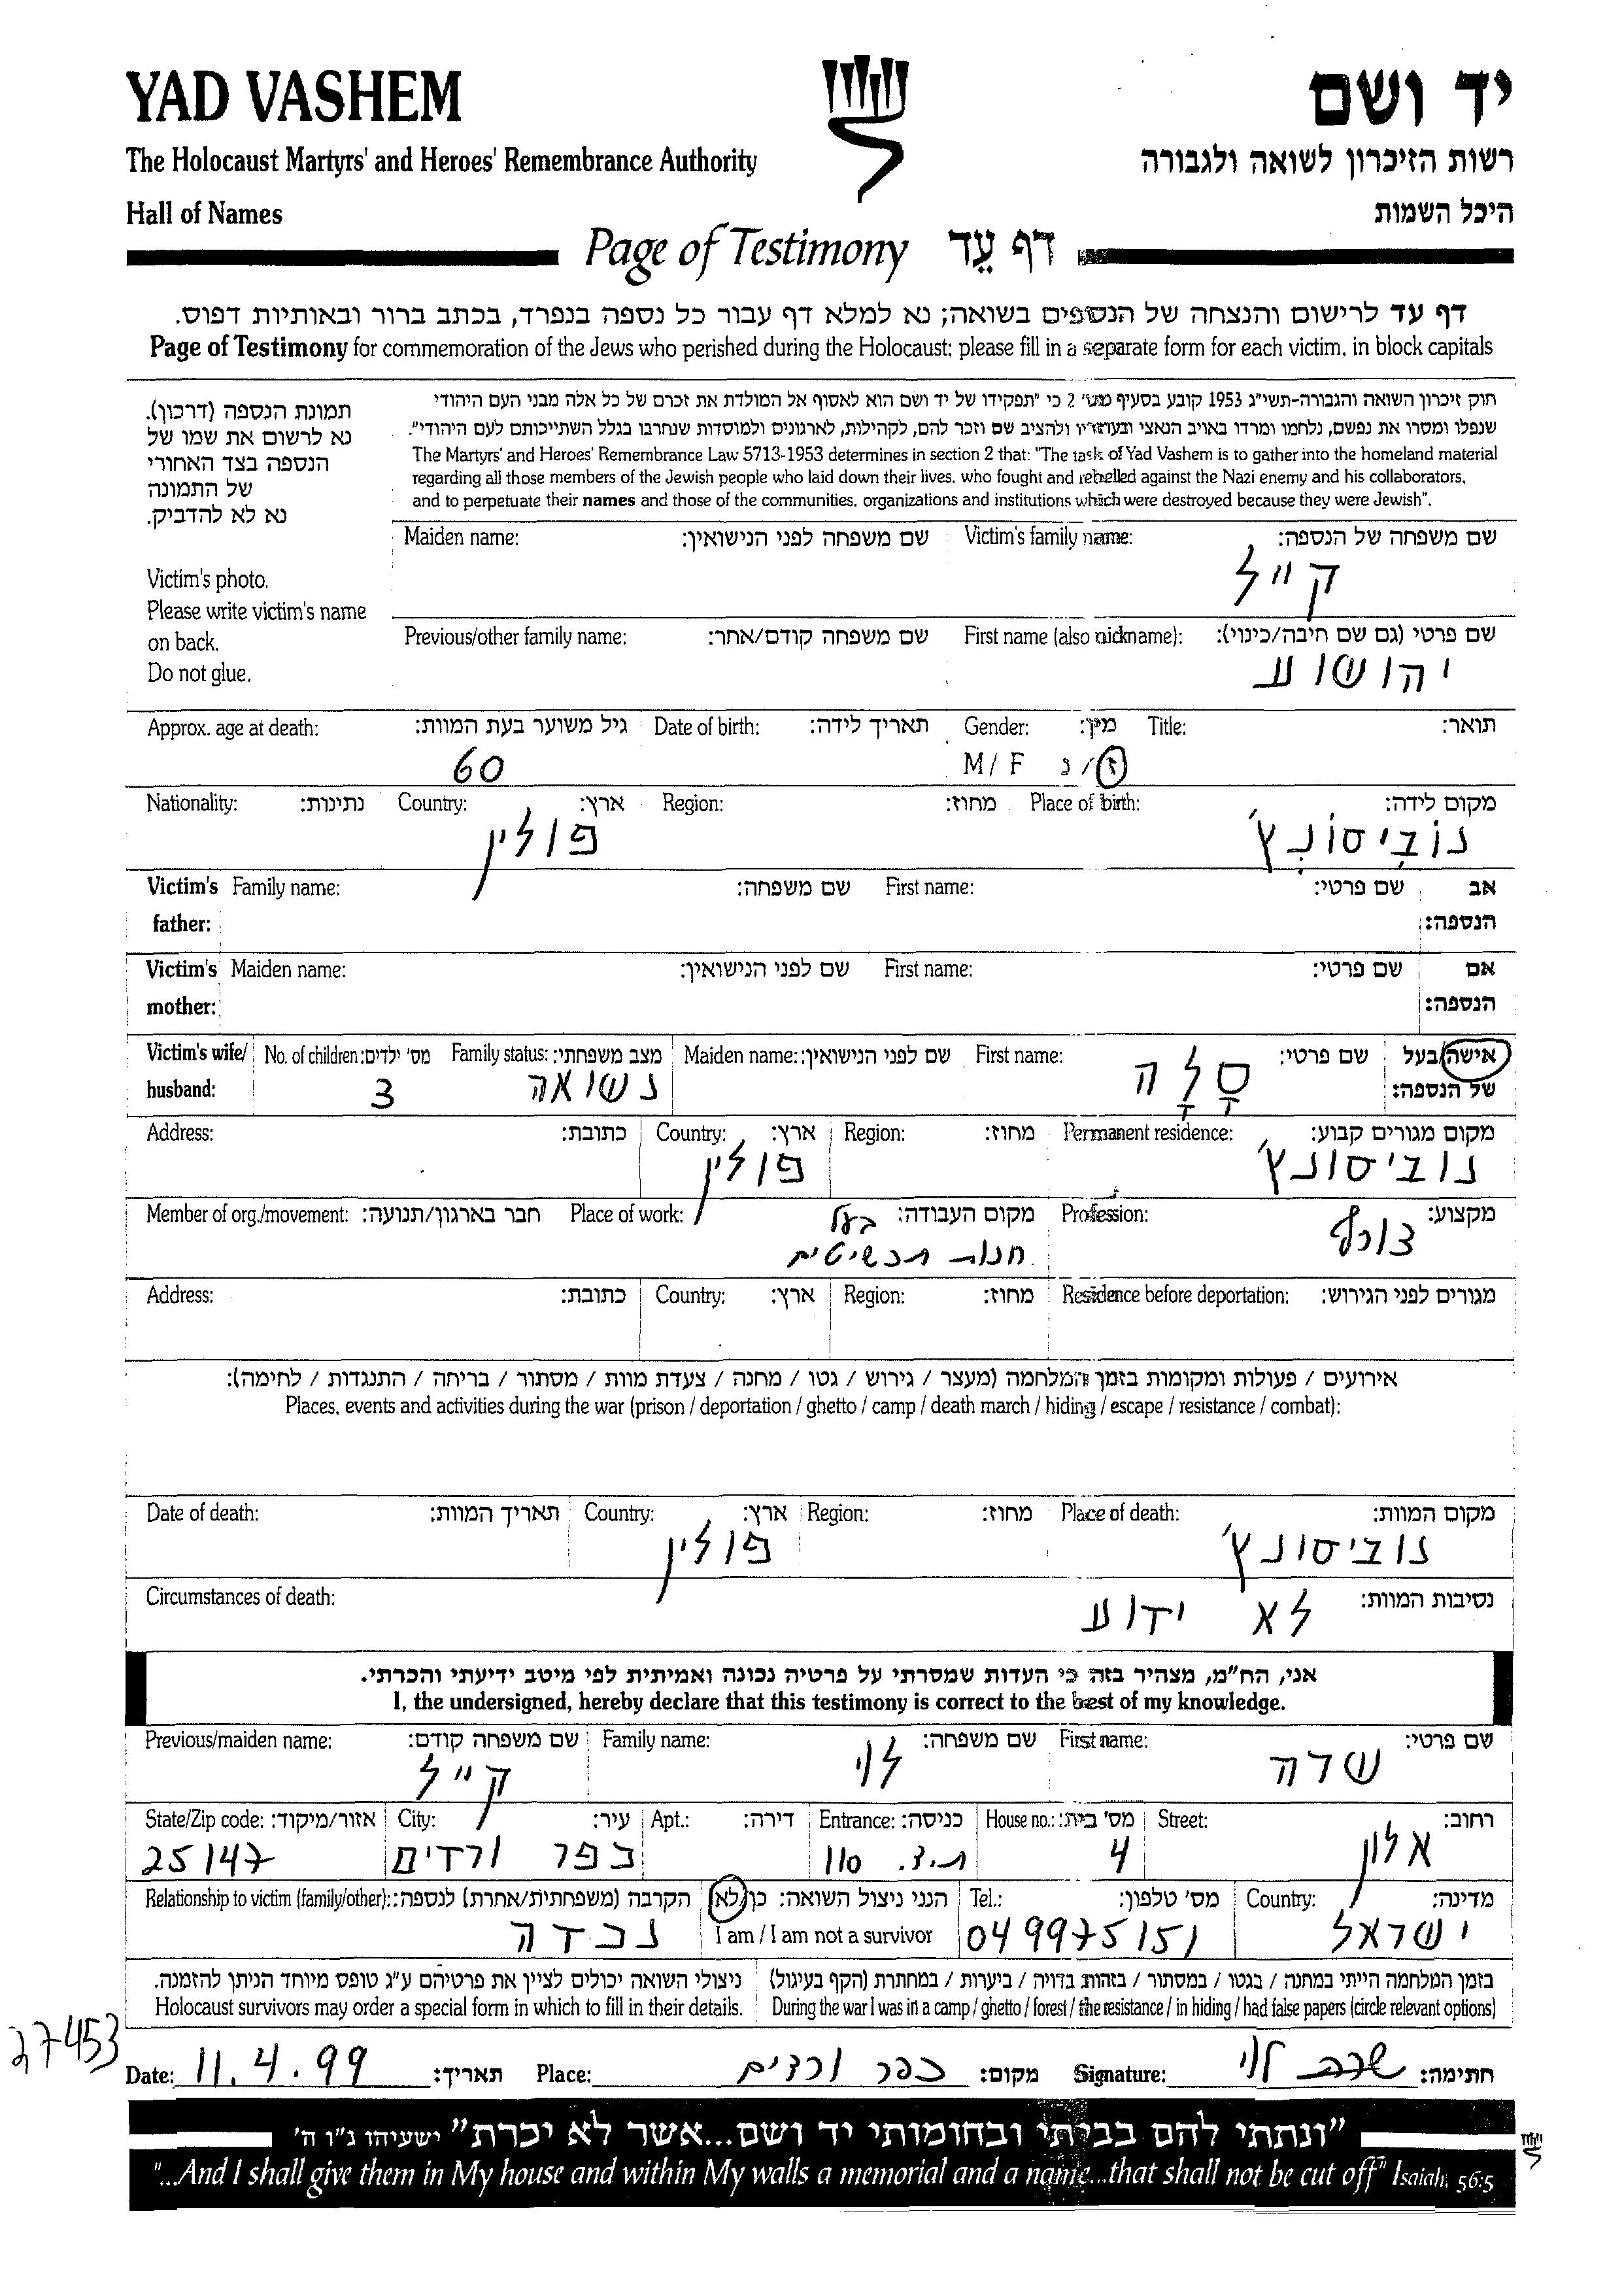 YAD VASHEM
יד ושם
The Holocaust Martyrs' and Heroes' Remembrance Authority
רשות הזיכרון לשואה ולגבורה
Hall of Names
היכל השמות
Page of Testimony דף עֵד
דף עד לרישום והנצחה של הנספים בשואה; נא למלא דף עבור כל נספה בנפרד, בכתב ברור ובאותיות דפוס.
Page of Testimony for commemoration of the Jews who perished during the Holocaust; please fill in a separate form for each victim, in block capitals
תמונת הנספה (דרכון).
נא לרשום את שמו של
הנספה בצד האחורי
של התמונה
נא לא להדביק.
Victim's photo.
Please write victim's name
on back.
Do not glue.
חוק זיכרון השואה והגבורה-תשי"ג 1953 קובע בסעיף מס' 2 כי "תפקידו של יד ושם הוא לאסוף אל המולדת את זכרם של כל אלה מבני העם היהודי
שנפלו ומסרו את נפשם, נלחמו ומרדו באויב הנאצי ובעוזריו ולהציב שם וזכר להם, לקהילות, לארגונים ולמוסדות שנחרבו בגלל השתייכותם לעם היהודי".
The Martyrs' and Heroes' Remembrance Law 5713-1953 determines in section 2 that: "The task of Yad Vashem is to gather into the homeland material
regarding all those members of the Jewish people who laid down their lives, who fought and rebelled against the Nazi enemy and his collaborators,
and to perpetuate their names and those of the communities, organizations and institutions which were destroyed because they were Jewish".
Maiden name: שם משפחה לפני הנישואין: Victim's family name: שם משפחה של הנספה:
קייל
Previous/other family name: שם משפחה קודם/אחר: First name (also nickname): שם פרטי (גם שם חיבה/כינוי):
יהושוע
Approx. age at death: גיל משוער בעת המוות: Date of birth: תאריך לידה: Gender: מין: Title: תואר:
60 M / F ז / נ
Nationality: נתינות: Country: ארץ: Region: מחוז: Place of birth: מקום לידה:
פולין נוֹבִיסוֹנְץ'
Victim's father: Family name: שם משפחה: First name: שם פרטי: אב הנספה:
Victim's mother: Maiden name: שם לפני הנישואין: First name: שם פרטי: אם הנספה:
Victim's wife/ husband: No. of children: מס' ילדים: Family status: מצב משפחתי: Maiden name: שם לפני הנישואין: First name: שם פרטי: אישה/בעל של הנספה:
3 נשואה סָלָה
Address: כתובת: Country: ארץ: Region: מחוז: Permanent residence: מקום מגורים קבוע:
פולין נוביסונץ'
Member of org./movement: חבר בארגון/תנועה: Place of work: מקום העבודה: Profession: מקצוע:
בעל
חנות תכשיטים צורף
Address: כתובת: Country: ארץ: Region: מחוז: Residence before deportation: מגורים לפני הגירוש:
אירועים / פעולות ומקומות בזמן המלחמה (מעצר / גירוש / גטו / מחנה / צעדת מוות / מסתור / בריחה / התנגדות / לחימה):
Places, events and activities during the war (prison / deportation / ghetto / camp / death march / hiding / escape / resistance / combat):
Date of death: תאריך המוות: Country: ארץ: Region: מחוז: Place of death: מקום המוות:
פולין נוביסונץ'
Circumstances of death: נסיבות המוות:
לא ידוע
אני, הח"מ, מצהיר בזה כי העדות שמסרתי על פרטיה נכונה ואמיתית לפי מיטב ידיעתי והכרתי.
I, the undersigned, hereby declare that this testimony is correct to the best of my knowledge.
Previous/maiden name: שם משפחה קודם: Family name: שם משפחה: First name: שם פרטי:
קייל לוי שרה
State/Zip code: אזור/מיקוד: City: עיר: Apt.: דירה: Entrance: כניסה: House no.: מס' בית: Street: רחוב:
25147 כפר ורדים ת.ד. 110 4 אלון
Relationship to victim (family/other): הקרבה (משפחתית/אחרת) לנספה: הנני ניצול השואה: כן/לא Tel.: מס' טלפון: Country: מדינה:
נכדה I am / I am not a survivor 049975151 ישראל
ניצולי השואה יכולים לציין את פרטיהם ע"ג טופס מיוחד הניתן להזמנה.
Holocaust survivors may order a special form in which to fill in their details.
בזמן המלחמה הייתי במחנה / בגטו / במסתור / בזהות בדויה / ביערות / במחתרת (הקף בעיגול)
During the war I was in a camp / ghetto / forest / the resistance / in hiding / had false papers (circle relevant options)
27453
Date: 11.4.99 תאריך: Place: כפר ורדים מקום: Signature: שרה לוי חתימה:
"ונתתי להם בביתי ובחומותי יד ושם...אשר לא יכרת" ישעיהו נ"ו ה'
"...And I shall give them in My house and within My walls a memorial and a name...that shall not be cut off" Isaiah, 56:5